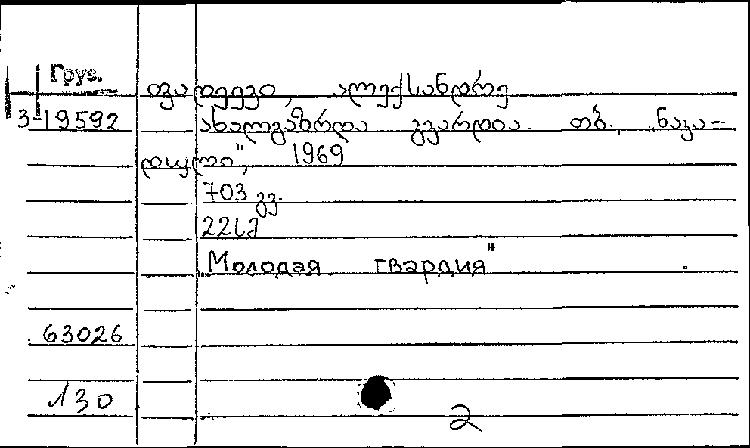 Груз.
ფადეევი, ალექსანდრე
3-19592 ახალგაზრდა გვარდია. თბ., „ნაკა-
დული", 1969
703 გვ.
"Молодая гвардия"
63026
130
2